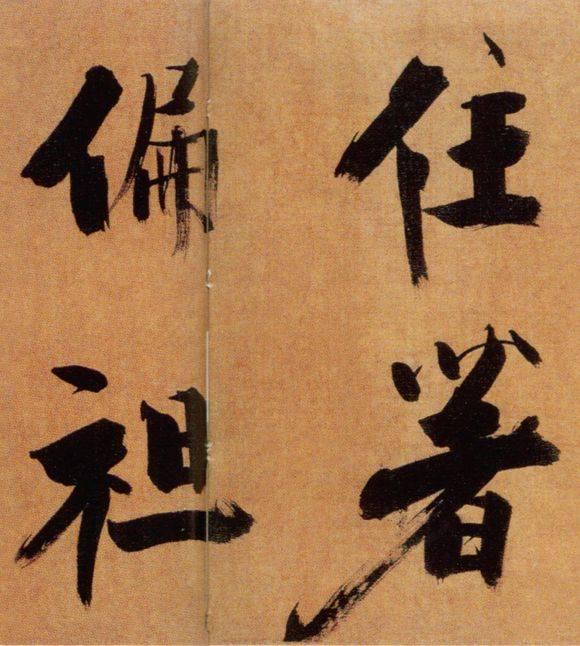 住著
偏袒